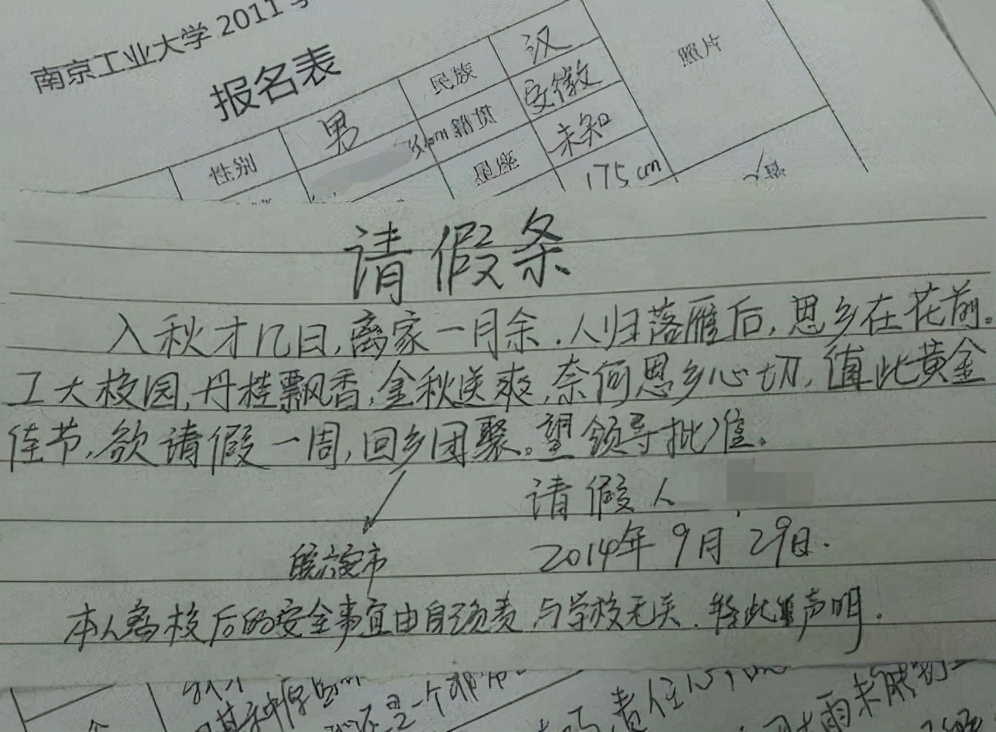 南京工业大学2011
报名表
性别 男 民族 汉 照片
籍贯 安徽
星座 未知
175cm
请假条
入秋才几日,离家一月余.人归落雁后,思乡在花前。
工大校园,丹桂飘香,金秋送爽,奈何思乡心切,值此黄金
佳节,欲请假一周,回乡团聚。望领导批准。
请假人
皖六安市 2014年9月29日.
本人离校后的安全事宜由自己负责,与学校无关.特此声明.
一个
责任
雨未